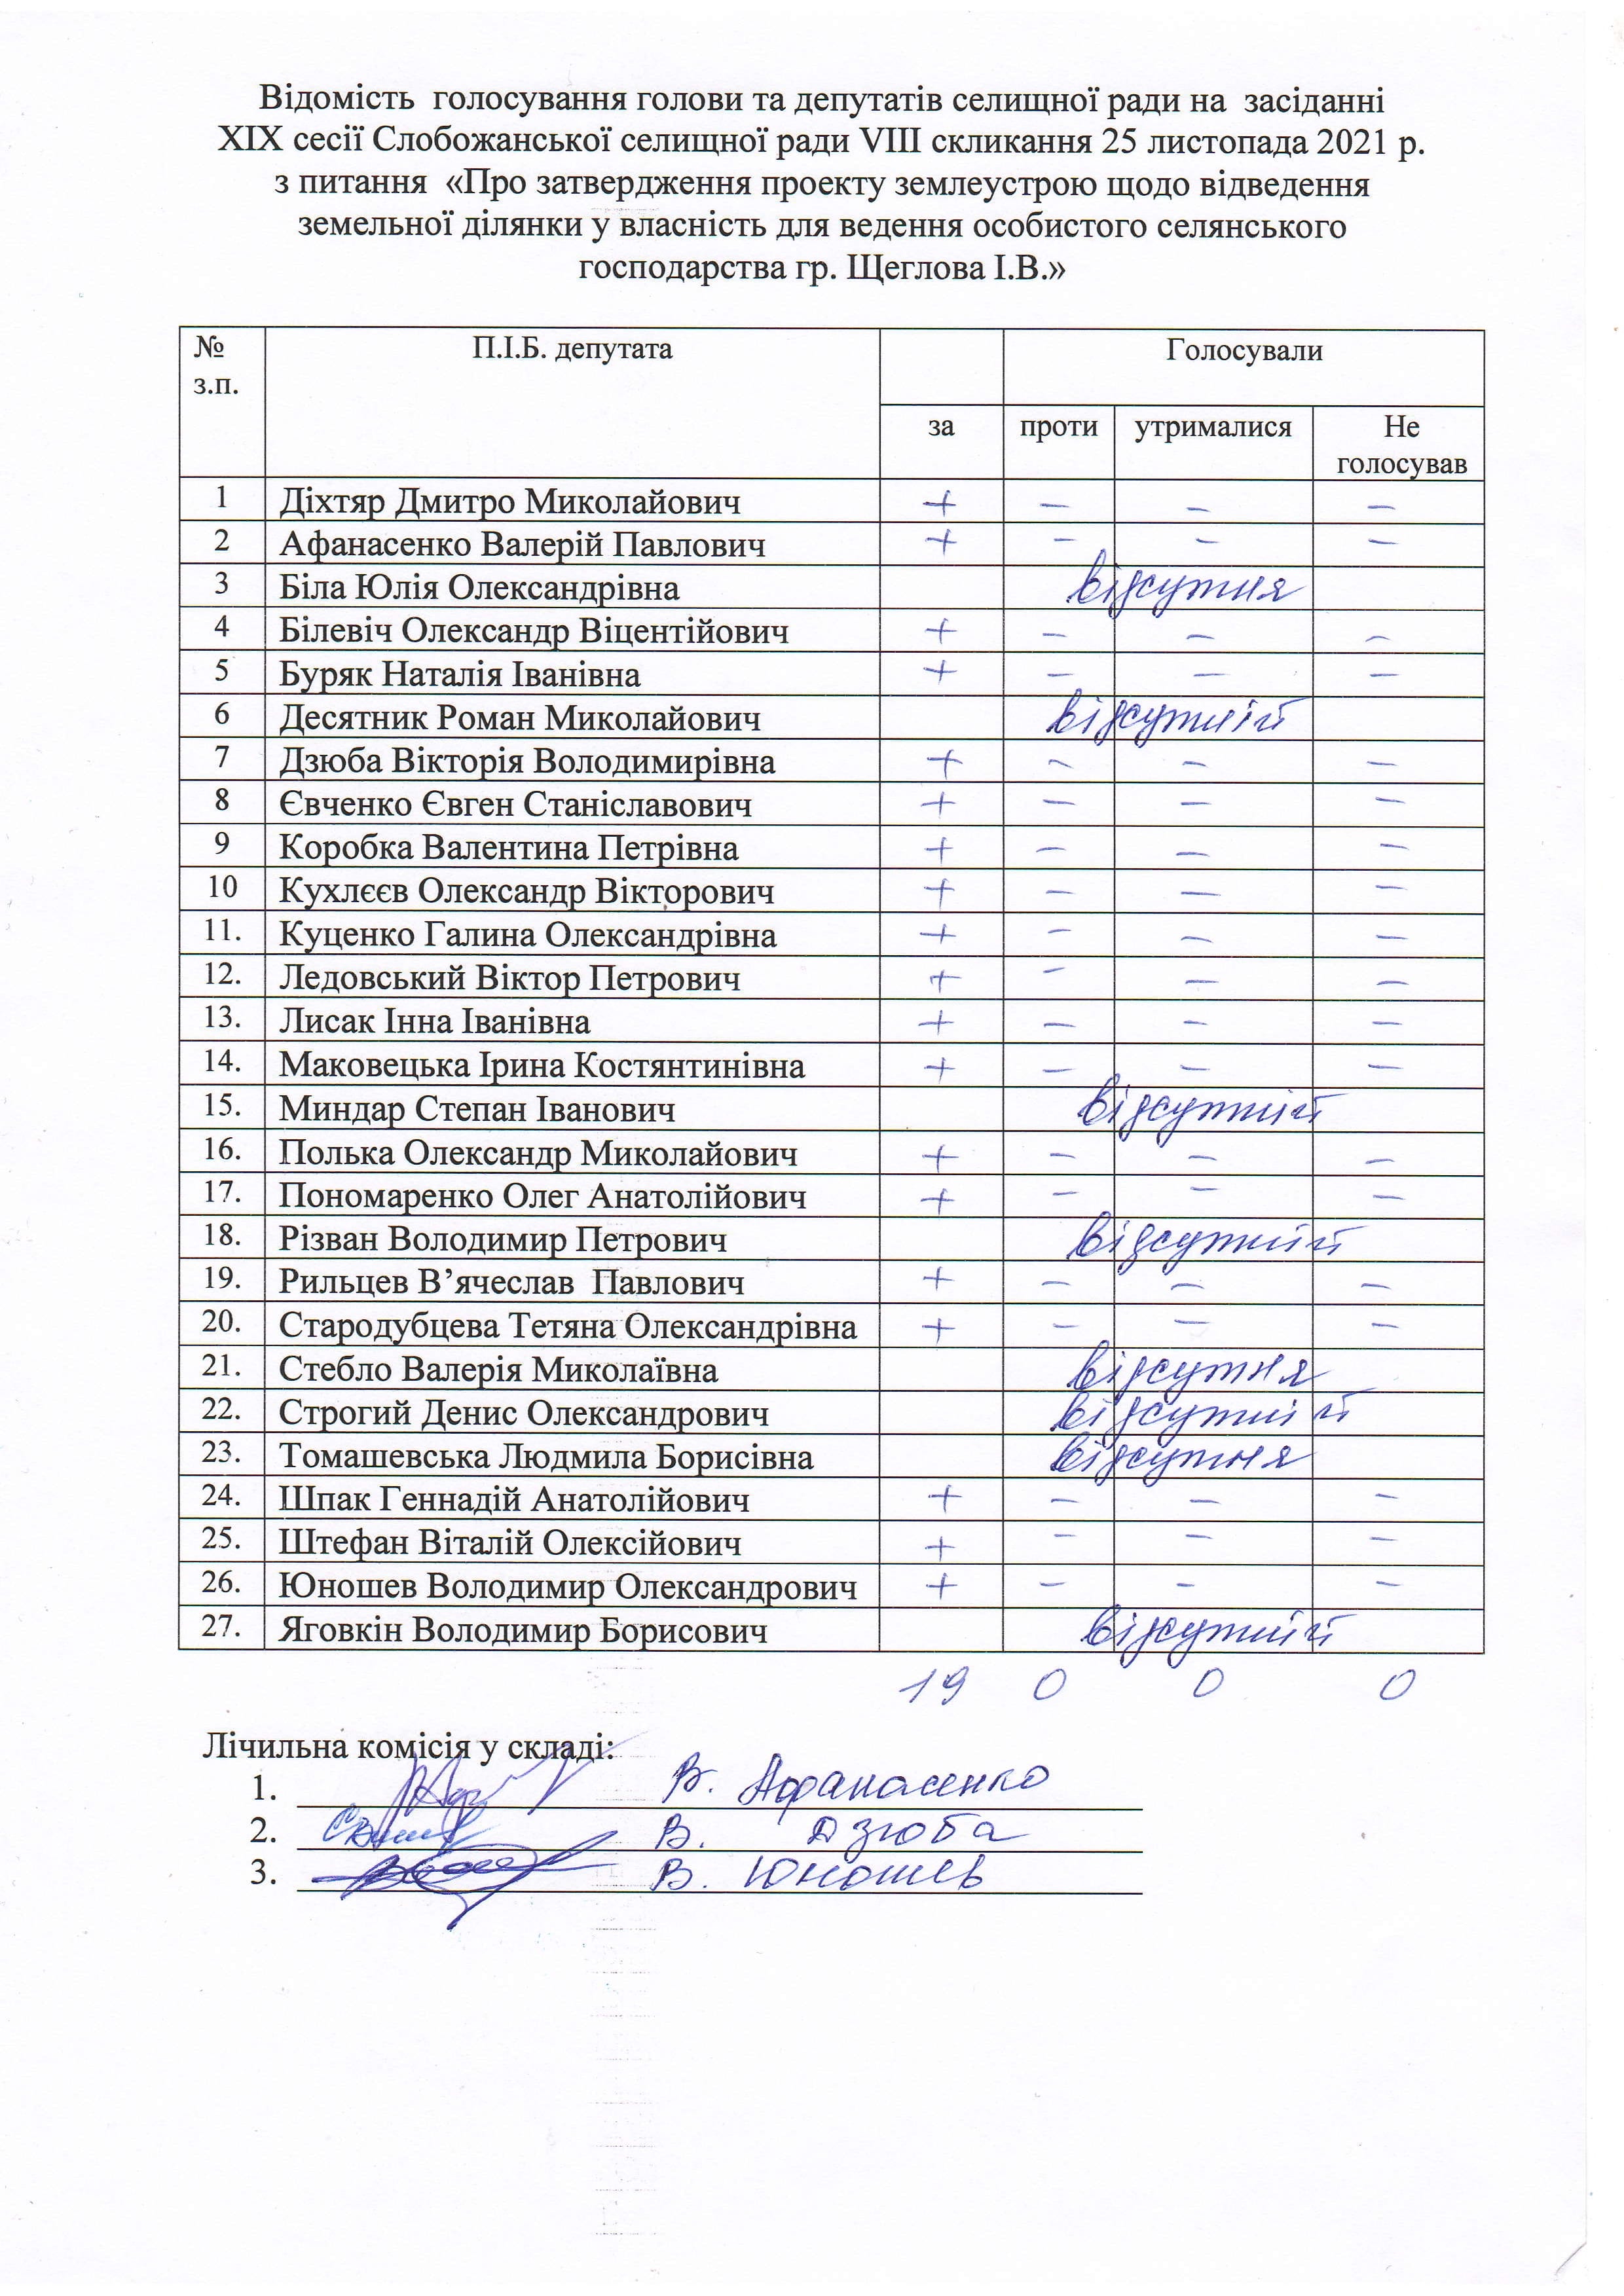 Відомість голосування голови та депутатів селищної ради на засіданні
ХІХ сесії Слобожанської селищної ради VІІІ скликання 25 листопада 2021 р.
з питання «Про затвердження проекту землеустрою щодо відведення
земельної ділянки у власність для ведення особистого селянського
господарства гр. Щеглова І.В.»
№ з.п. П.І.Б. депутата Голосували
за проти утрималися Не голосував
1 Діхтяр Дмитро Миколайович + – – –
2 Афанасенко Валерій Павлович + – – –
3 Біла Юлія Олександрівна відсутня
4 Білевіч Олександр Віцентійович + – – –
5 Буряк Наталія Іванівна + – – –
6 Десятник Роман Миколайович відсутній
7 Дзюба Вікторія Володимирівна + – – –
8 Євченко Євген Станіславович + – – –
9 Коробка Валентина Петрівна + – – –
10 Кухлєєв Олександр Вікторович + – – –
11. Куценко Галина Олександрівна + – – –
12. Ледовський Віктор Петрович + – – –
13. Лисак Інна Іванівна + – – –
14. Маковецька Ірина Костянтинівна + – – –
15. Миндар Степан Іванович відсутній
16. Полька Олександр Миколайович + – – –
17. Пономаренко Олег Анатолійович + – – –
18. Різван Володимир Петрович відсутній
19. Рильцев В’ячеслав Павлович + – – –
20. Стародубцева Тетяна Олександрівна + – – –
21. Стебло Валерія Миколаївна відсутня
22. Строгий Денис Олександрович відсутній
23. Томашевська Людмила Борисівна відсутня
24. Шпак Геннадій Анатолійович + – – –
25. Штефан Віталій Олексійович + – – –
26. Юношев Володимир Олександрович + – – –
27. Яговкін Володимир Борисович відсутній
19 0 0 0
Лічильна комісія у складі:
1. В. Афанасенко
2. В. Дзюба
3. В. Юношев